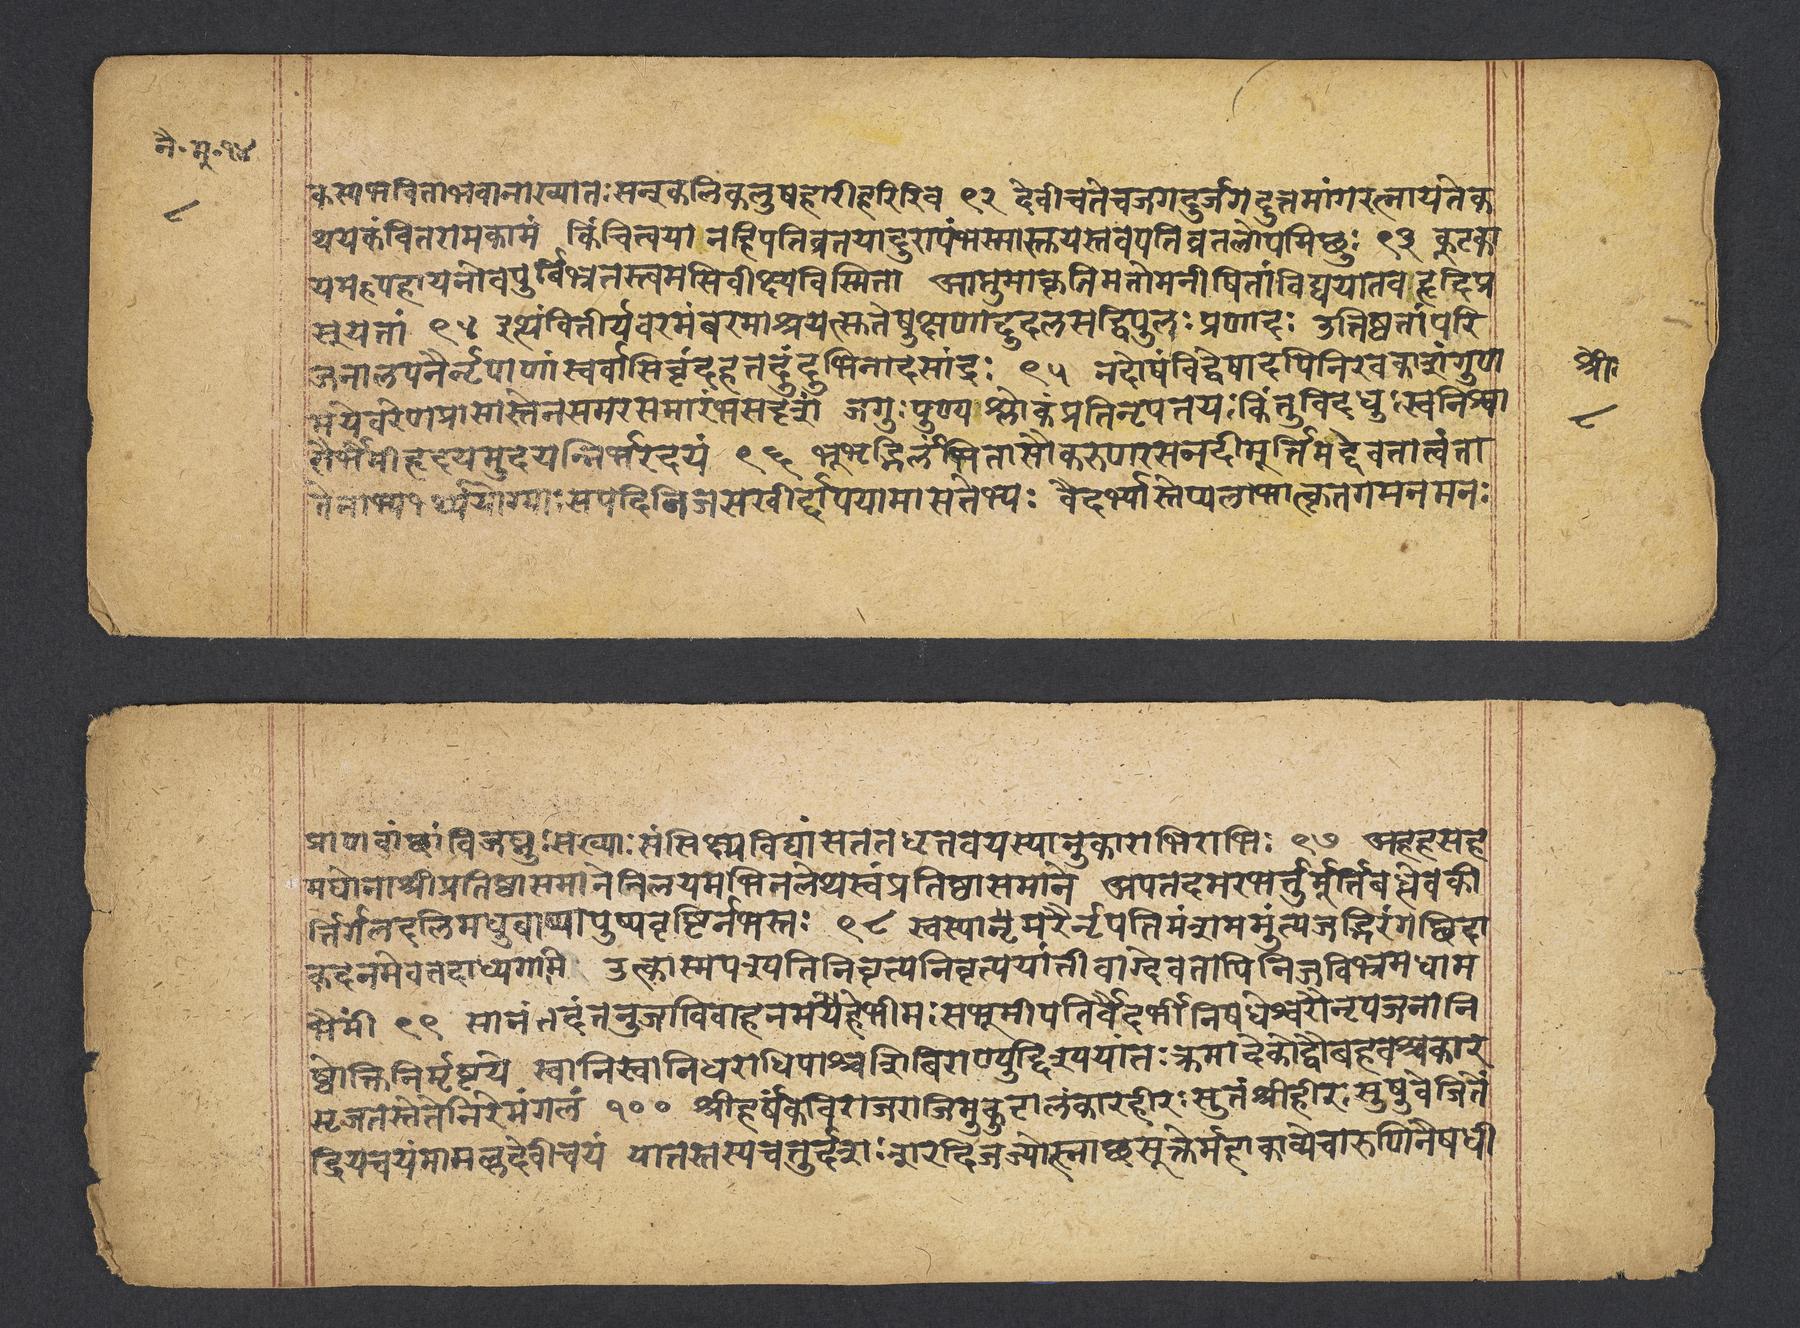 नै॰मू॰१४
८
कस्याभवितानभवानाख्यातःसन्नकलिकलुषहारीहरिरिव ९२ देवीचतेचजगदुर्जगदुत्तमांगरत्नायतेक
थयकंवितरामकामं किंचित्वया नहिपतिव्रतयादुरापंभस्मास्तयस्तवेपतिव्रतलोपमिच्छुः ९३ कूटका
यमहपहायनोवपुर्बिभ्रतस्त्वमसिवीक्ष्यविस्मिता आप्तुमाकृतिमतोमनीषितांविद्ययातवहृदिप्र
सूयतां ९४ इत्थंवितीर्यवरमंबरमाश्रयत्सुतेषुक्षणादुदलसद्विपुलःप्रणादः उत्तिष्ठतांपरि
जनालपनैर्नृपाणांस्वर्वासिवृंदहतदुंदुभिनादसांद्रः ९५ नदोषंविद्वेषादपिनिरवकाशंगुण
मयेवरेणप्राप्तास्तेनसमरसमारंभसदृशं जगुःपुण्यश्लोकंप्रतिनृपतयःकिंतुविदधुःस्वनिश्वा
सैर्भैमीहृदयमुदयन्निर्भरदयं ९६ भूभृद्भिर्लंभितासौकरुणरसनदीमूर्त्तिमद्देवतात्वंता
तेनाभ्यर्थ्ययोग्याःसपदिनिजसखीर्दापयामासतेभ्यः वैदर्भ्यास्तेप्यलाभात्कृतगमनमनः
श्रीः
८
प्राणवांछांविजघ्नुःसख्याःसंसिक्ष्यविद्यांसततधृतवयस्यानुकाराभिराभिः ९७ अहहसह
मघोनाश्रीप्रतिष्ठासमानेनिलयमभिनलेथस्वंप्रतिष्ठासमाने अपतदमरभर्त्तुर्मूर्त्तिबद्धेवकी
र्त्तिर्गलदलिमधुबाष्पापुष्पवृष्टिर्नभस्तः ९८ स्वस्यामरैर्नृपतिमंशममुंत्यजद्भिरंगच्छिदा
कदनमेवतदाध्यगामि उत्कास्मपश्यतिनिवृत्यनिवृत्ययांतीवाग्देवतापिनिजविभ्रमधाम
भैमीं ९९ सानंदंतनुजाविवाहनमहेभीमःसभूमीपतिर्वैदर्भीनिषधेश्वरौनृपजनानि
ष्टोक्तिनिर्मृष्टये स्वानिस्वानिधराधिपाश्चशिबिराण्युद्दिश्ययांतःक्रमादेकोद्वौबहवश्चकार
सृजतस्तेतेनिरेमंगलं १०० श्रीहर्षंकविराजराजिमुकुटालंकारहीरःसुतंश्रीहीरःसुषुवेजितें
द्रियचयंमामल्लदेवीचयं यातस्तस्यचतुर्दशःशरदिजज्योत्स्नाच्छसूक्तेर्महाकाव्येचारुणिनैषधी